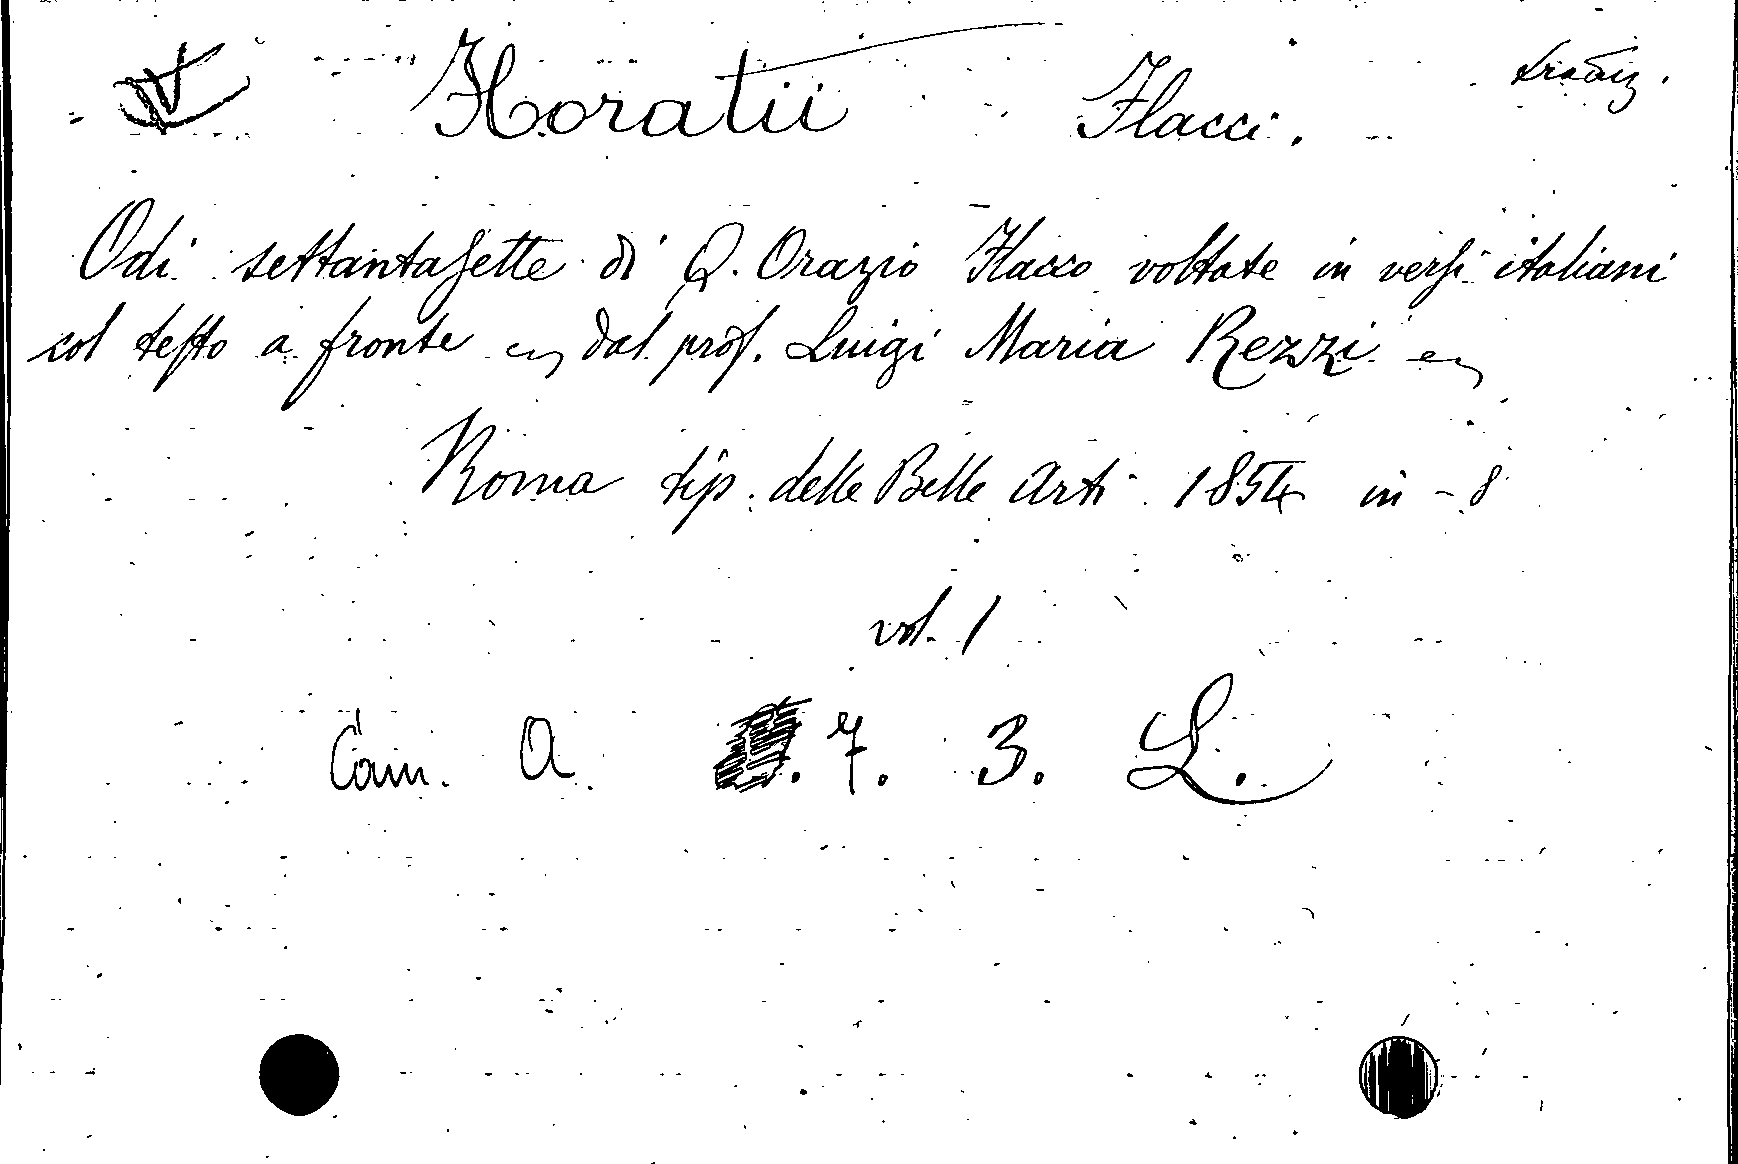 Horatii Flacci. traduz.
Odi settantasette di Q. Orazio Flacco voltate in versi italiani
col testo a fronte dal prof. Luigi Maria Rezzi
Roma tip. delle Belle Arti 1854 in-8
vol. 1
Cam. A 7. 3. L.